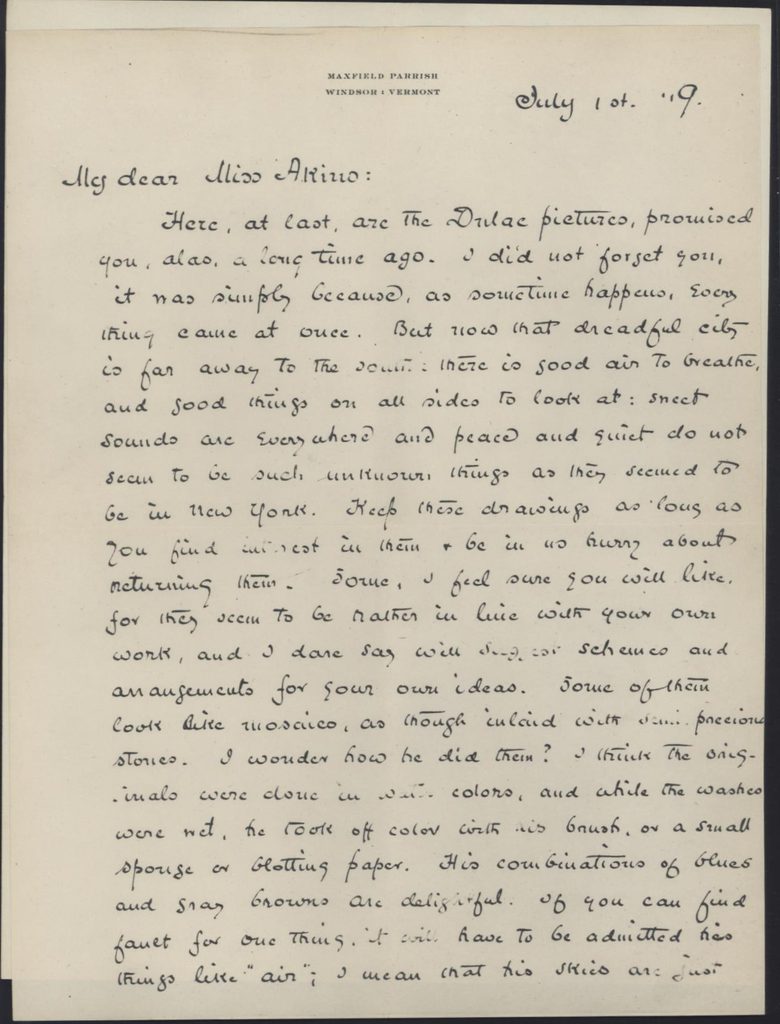 MAXFIELD PARRISH
WINDSOR : VERMONT
July 1st. '19.
My dear Miss Akins:
Here, at last, are the Dulac pictures, promised
you, alas, a long time ago. I did not forget you,
it was simply because, as sometime happens, every
thing came at once. But now that dreadful city
is far away to the south: there is good air to breathe,
and good things on all sides to look at: sweet
sounds are everywhere and peace and quiet do not
seem to be such unknown things as they seemed to
be in New York. Keep these drawings as long as
you find interest in them + be in no hurry about
returning them. Some, I feel sure you will like,
for they seem to be rather in line with your own
work, and I dare say will suggest schemes and
arrangements for your own ideas. Some of them
look like mosaics, as though inlaid with semi-precious
stones. I wonder how he did them? I think the orig-
inals were done in water colors, and while the washes
were wet, he took off color with his brush, or a small
sponge or blotting paper. His combinations of blues
and gray browns are delightful. If you can find
fault for one thing, it will have to be admitted his
things like "air"; I mean that his skies are just